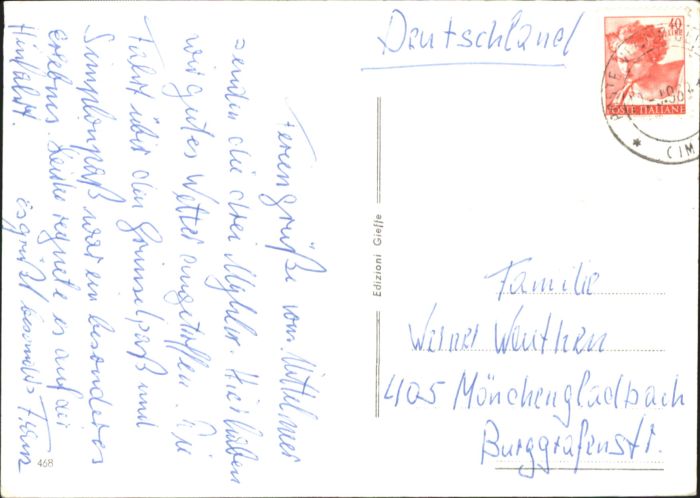 Feriengrüße vom Mittelmeer
senden die drei Mÿhler. Hier haben
wir gutes Wetter angetroffen. Die
Fahrt über den Grimselpaß und
Simplonpaß war ein besonderes
erlebnis. Leider regnete es auf der
Hinfahrt.
es grüßt besonders Franz
468
Edizioni Gieffe
Deutschland
40
LIRE
POSTE ITALIANE
CIM
Familie
Werner Wenthen
405 Mönchengladbach
Burggrafenstr.